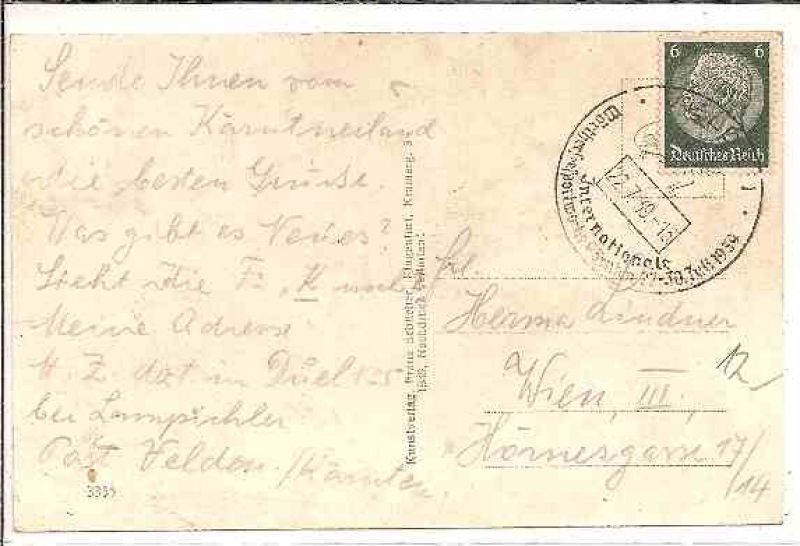 Sende Ihnen vom
schönen Kärntnerland
die besten Grüsse.
Was gibt es Neues?
Steht die F. "K" noch
Meine Adresse
H. Z. dzt in Duel 125
bei Lampichler
Post Velden /Kärnten
3335
Kunstverlag Franz Schilcher, Klagenfurt,
6 6
Deutsches Reich
22.7.39
Internationale
-30. Juli 1939
Frl.
Herma Lindner
Wien, III.,
Hörnesgasse 17/
/14
12